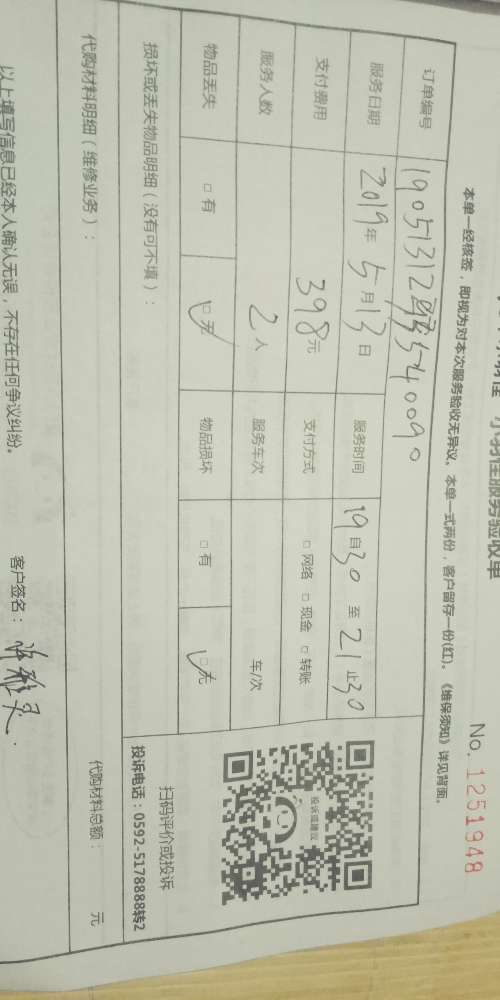 服务验收单
No. 1251948
本单一经核签，即视为对本次服务验收无异议。本单一式两份，客户留存一份(红)。《维保须知》详见背面。
订单编号
服务日期 2019年 5月13日 服务时间 19自30 至 21止30
支付费用 398元 支付方式 □ 网络 □ 现金 □ 转账
服务人数 2人 服务车次 车/次
物品丢失 □ 有 □ 无 物品损坏 □ 有 □ 无
投诉或建议
扫码评价或投诉
投诉电话：0592-5178888转2
损坏或丢失物品明细（没有可不填）：
代购材料明细（维修业务）：
代购材料总额： 元
以上填写信息已经本人确认无误，不存在任何争议纠纷。 客户签名：